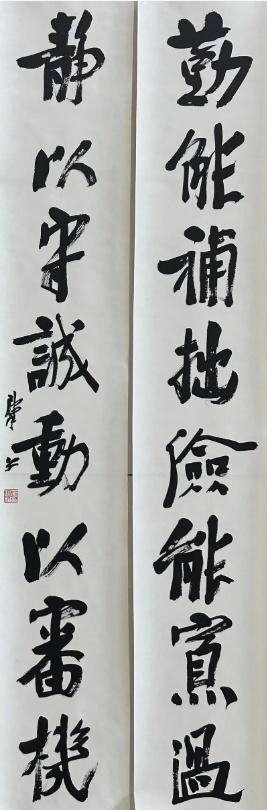 勤能補拙儉能寡過
静以守誠動以審機